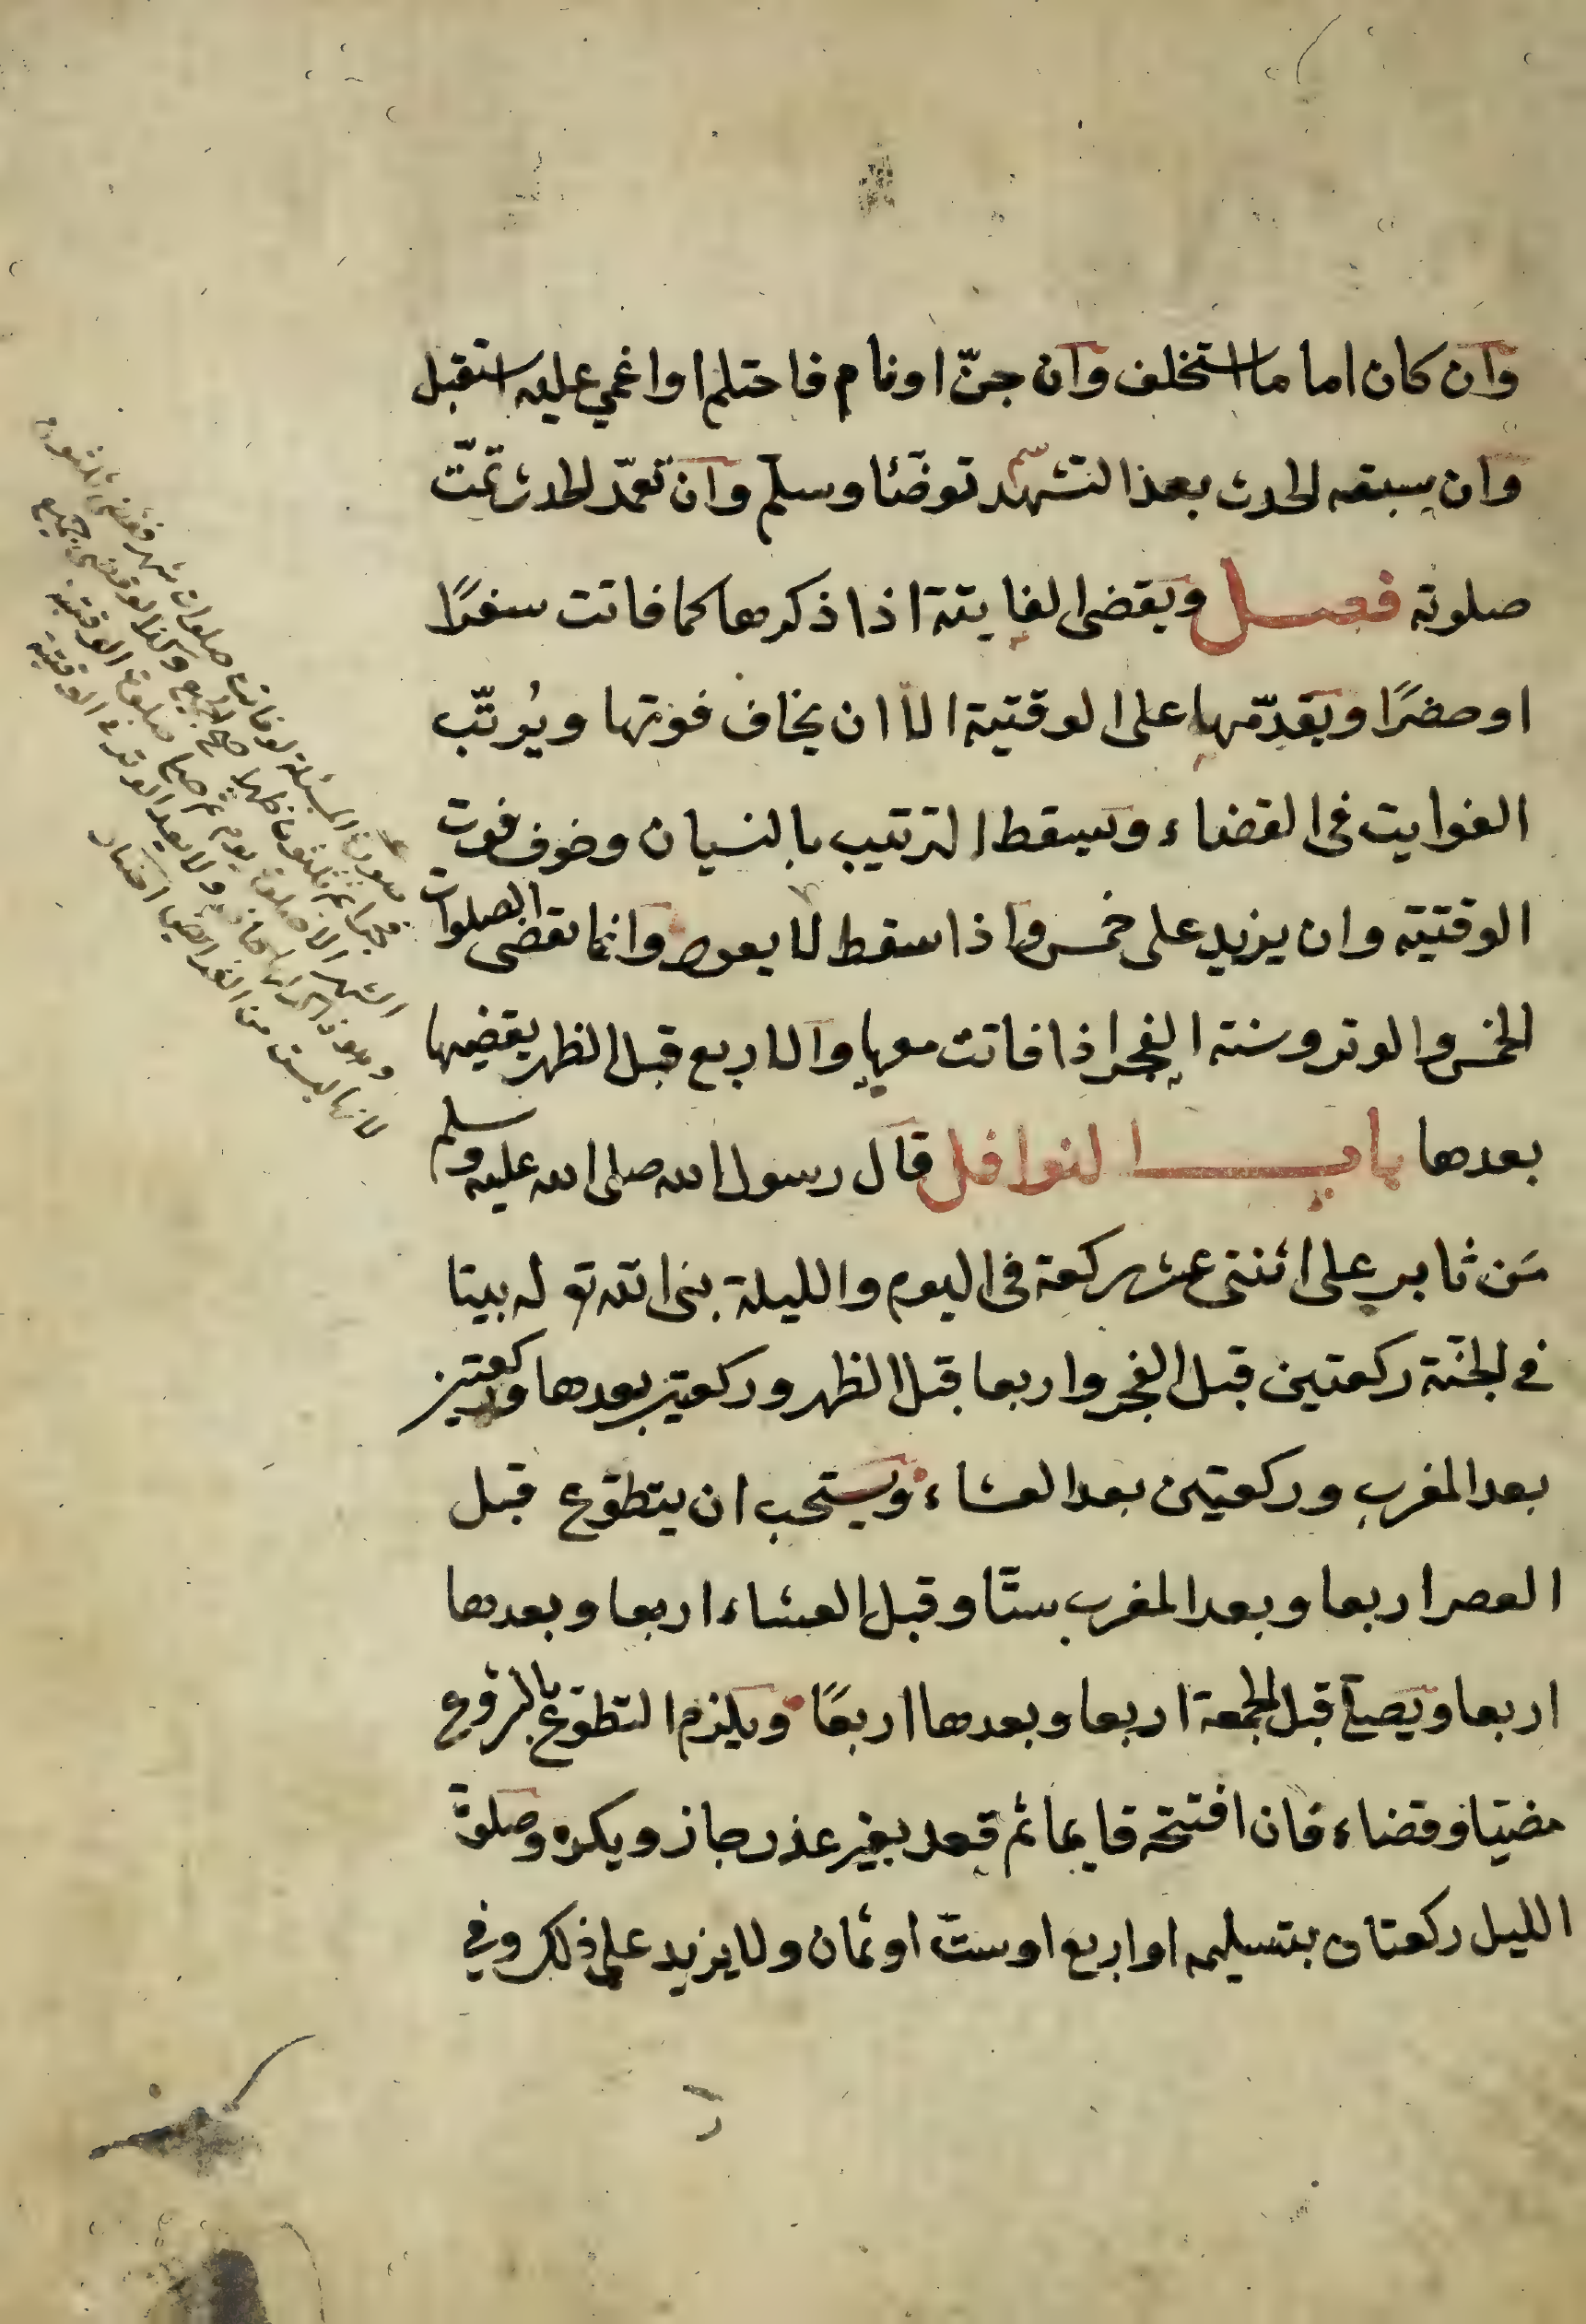 وان كان اماما استخلف وان جنّ او نام فاحتلم او اغمي عليه استقبل
وان سبقه الحدث بعد التشهّد توضّئا وسلّم وان تعمّد الحدث تمّت
صلوته فصل ويقضى الفايتة اذا ذكرها كما فاتت سفرًا
او حضرًا ويقدّمها على الوقتية الا ان يخاف فوتها ويُرتّب
الفوايت فى القضاء ويسقط الترتيب بالنسيان وخوف فوت
الوقتية وان يزيد على خمس واذا سقط لا يعود وانما تقضى الصلوات
الخمس والوتر وسنة الفجر اذا فاتت معها والاربع قبل الظهر يقضيها
بعدها باب النوافل قال رسول الله صلى الله عليه وسلم
مَن ثابر على اثنتى عشر ركعة فى اليوم والليلة بنى الله تع له بيتا
في الجنّة ركعتين قبل الفجر واربعا قبل الظهر وركعتين بعدها وركعتين
بعد المغرب وركعتين بعد العشاء ويستحب ان يتطوّع قبل
العصر اربعا وبعد المغرب ستّا وقبل العشاء اربعا وبعدها
اربعا ويصلّى قبل الجمعة اربعا وبعدها اربعًا ويلزم التطوّع بالشروع
مضيّا وقضاء فان افتتحه قايما ثم قعد بغير عذر جاز ويكره وصلوة
الليل ركعتان بتسليمه او اربع او ستّ او ثمان ولا يزيد على ذلك وفي